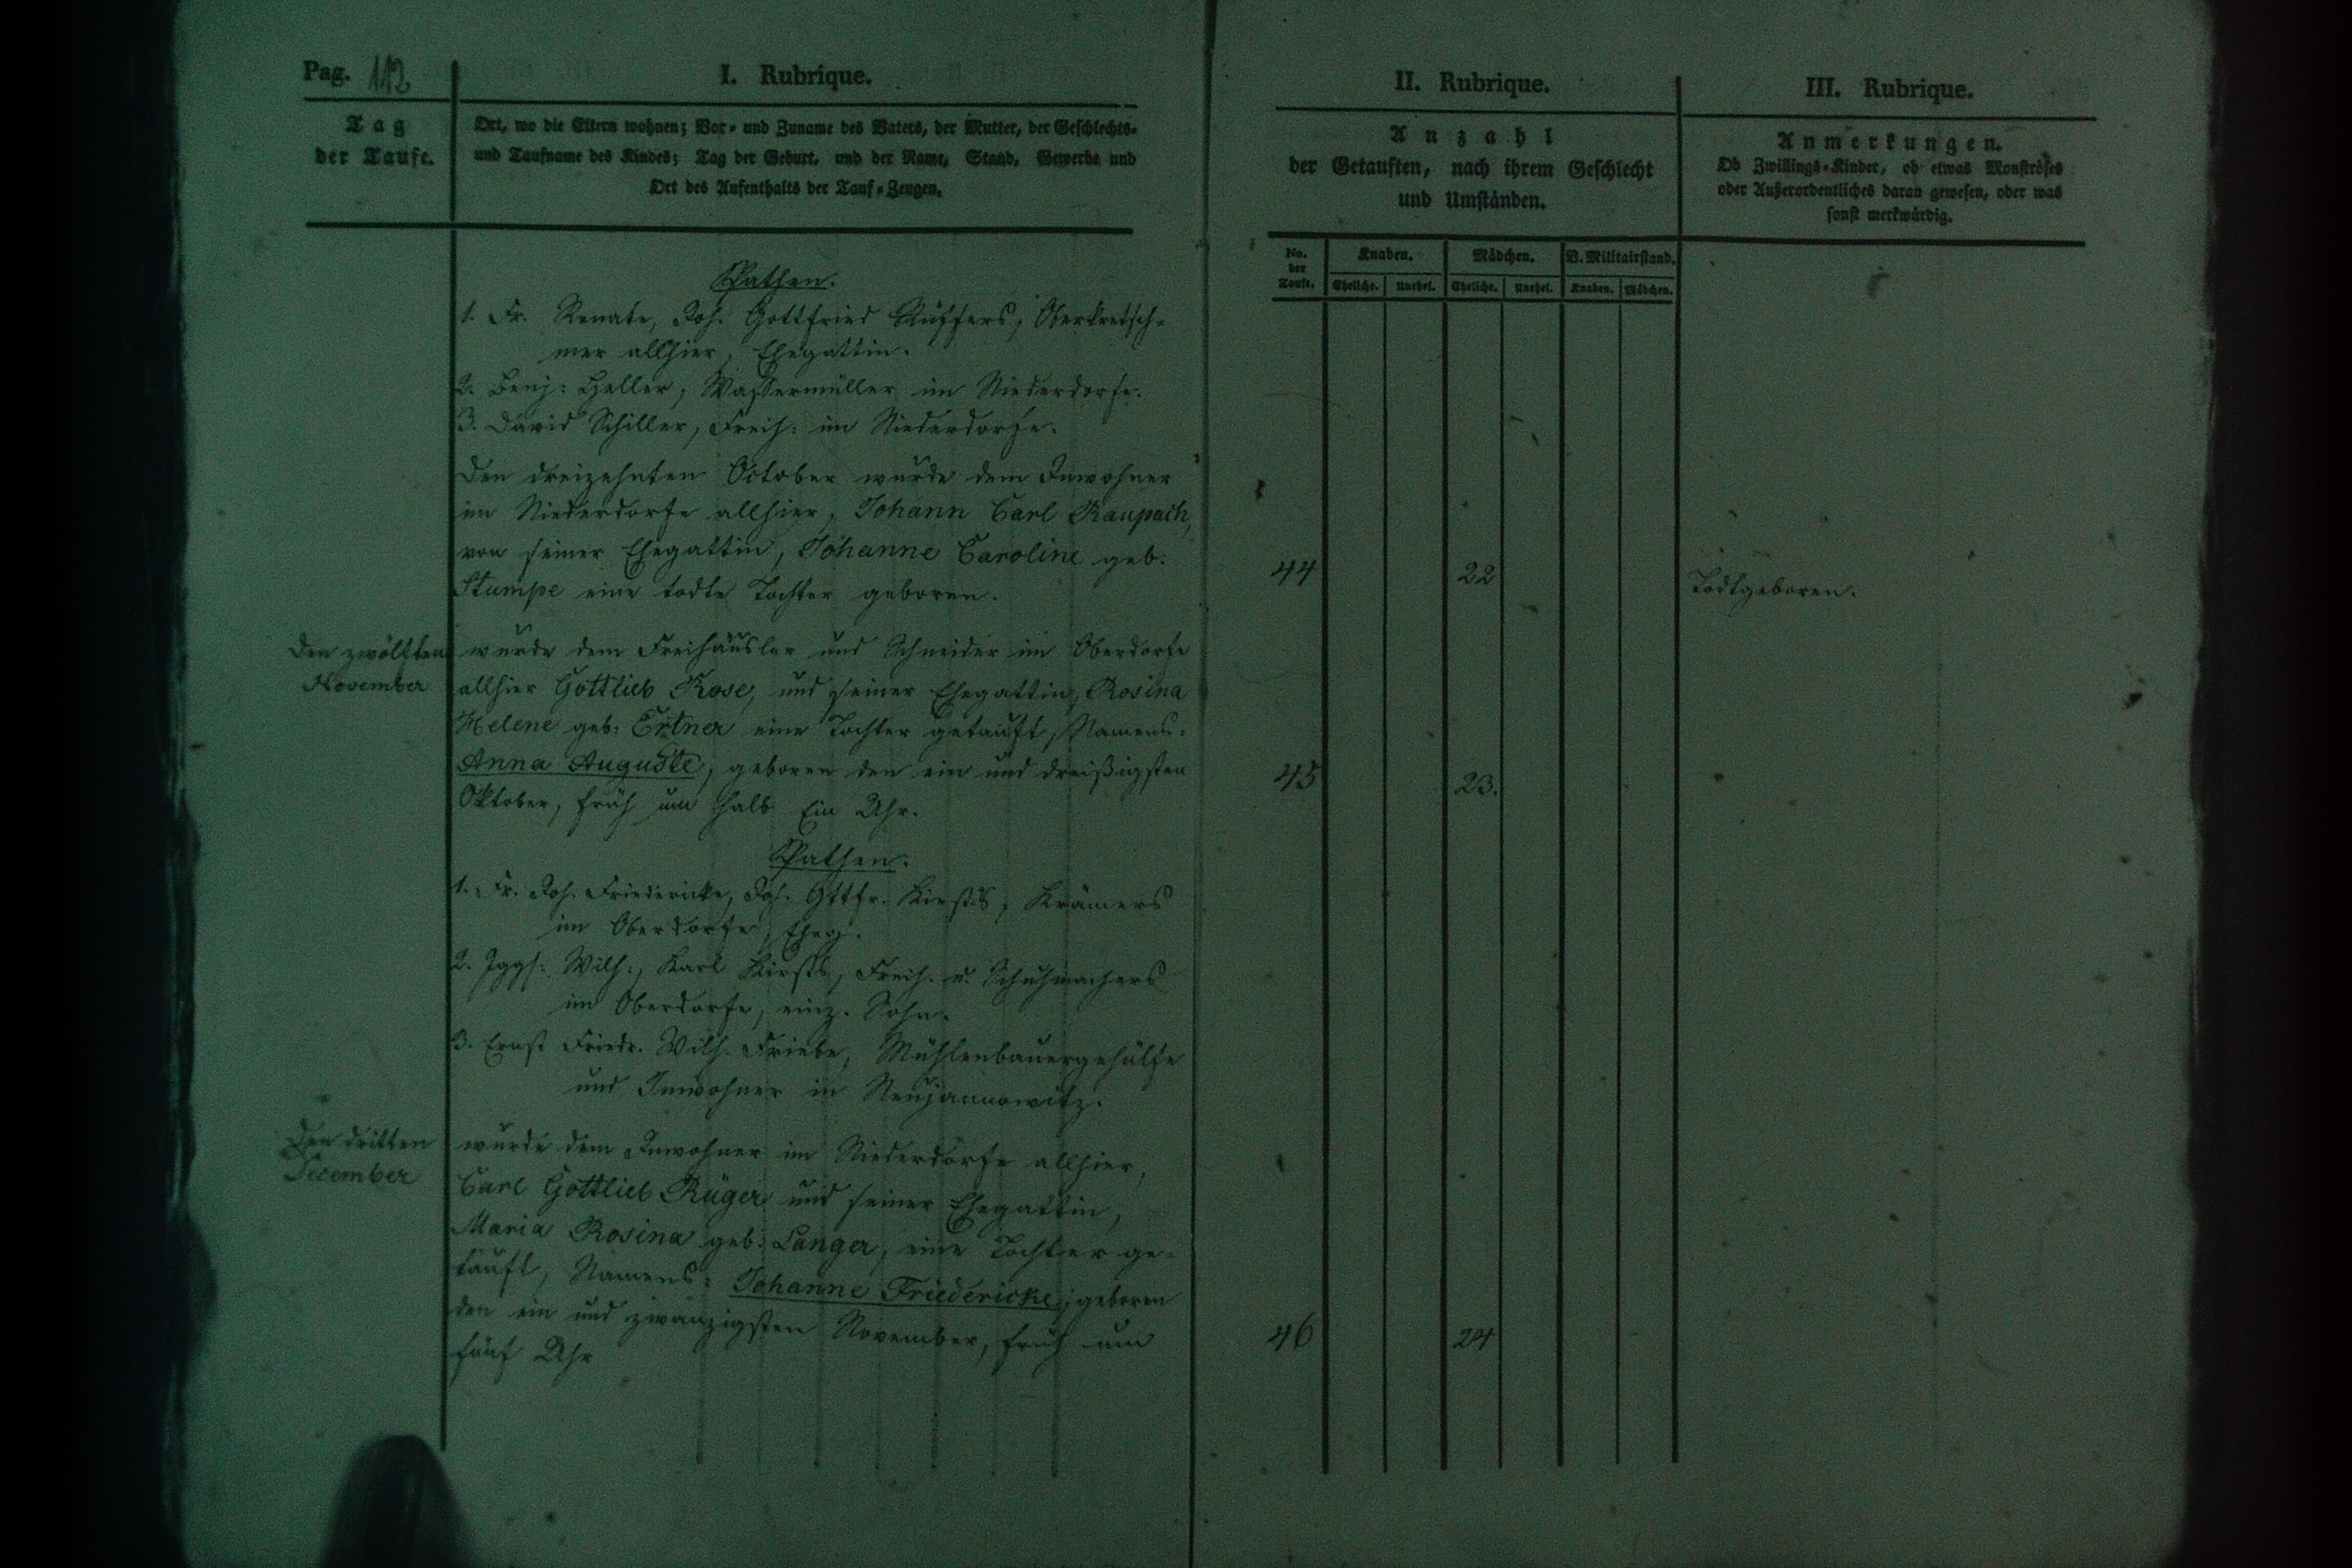 Pag. 112
I. Rubrique.
Tag
der Taufe.
Ort, wo die Eltern wohnen; Vor- und Zuname des Vaters, der Mutter, der Geschlechts-
und Taufname des Kindes; Tag der Geburt, und der Name, Stand, Gewerbe und
Ort des Aufenthalts der Tauf-Zeugen.
Pathen.
1. Fr. Renate, Joh. Gottfried Rüffers, Oberkretsch-
mer allhier, Ehegattin.
2. Benj: Heller, Wassermüller im Niederdorfe.
3. David Schiller, Freih: im Niederdorfe.
Den dreizehnten October wurde dem Inwohner
im Niederdorfe allhier, Johann Carl Raupach,
von seiner Ehegattin, Johanne Caroline geb.
Stumpe eine todte Tochter geboren.
Den zwölften
November
wurde dem Freihäusler und Schneider im Oberdorfe
allhier Gottlieb Rose, und seiner Ehegattin, Rosina
Helene geb: Ertner eine Tochter getauft, Namens:
Anna Auguste, geboren den ein und dreißigsten
Oktober, früh um halb Ein Uhr.
Pathen.
1. Fr. Joh. Friedericke, Joh. Gttfr. Kirsts, Krämers
im Oberdorfe, Eheg.
2. Jggs: Wilh:, Karl Kirsts, Freih. u. Schuhmachers
im Oberdorfe, einz. Sohn.
3. Ernst Friedr. Wilh. Friebe, Mühlenbauergehülfe
und Inwohner in Neujannowitz.
Den dritten
December
wurde dem Inwohner im Niederdorfe allhier,
Carl Gottlieb Rüger und seiner Ehegattin,
Maria Rosina geb: Langer, eine Tochter ge-
tauft, Namens: Johanne Friedericke, geboren
den ein und zwanzigsten November, früh um
fünf Uhr
II. Rubrique.
Anzahl
der Getauften, nach ihrem Geschlecht
und Umständen.
No.
der
Taufe.
Knaben. Mädchen. V. Militairstand.
Eheliche. Unehel. Eheliche. Unehel. Knaben. Mädchen.
44 22
45 23.
46 24
III. Rubrique.
Anmerkungen.
Ob Zwillings-Kinder, ob etwas Monströses
oder Außerordentliches daran gewesen, oder was
sonst merkwürdig.
Todtgeboren.